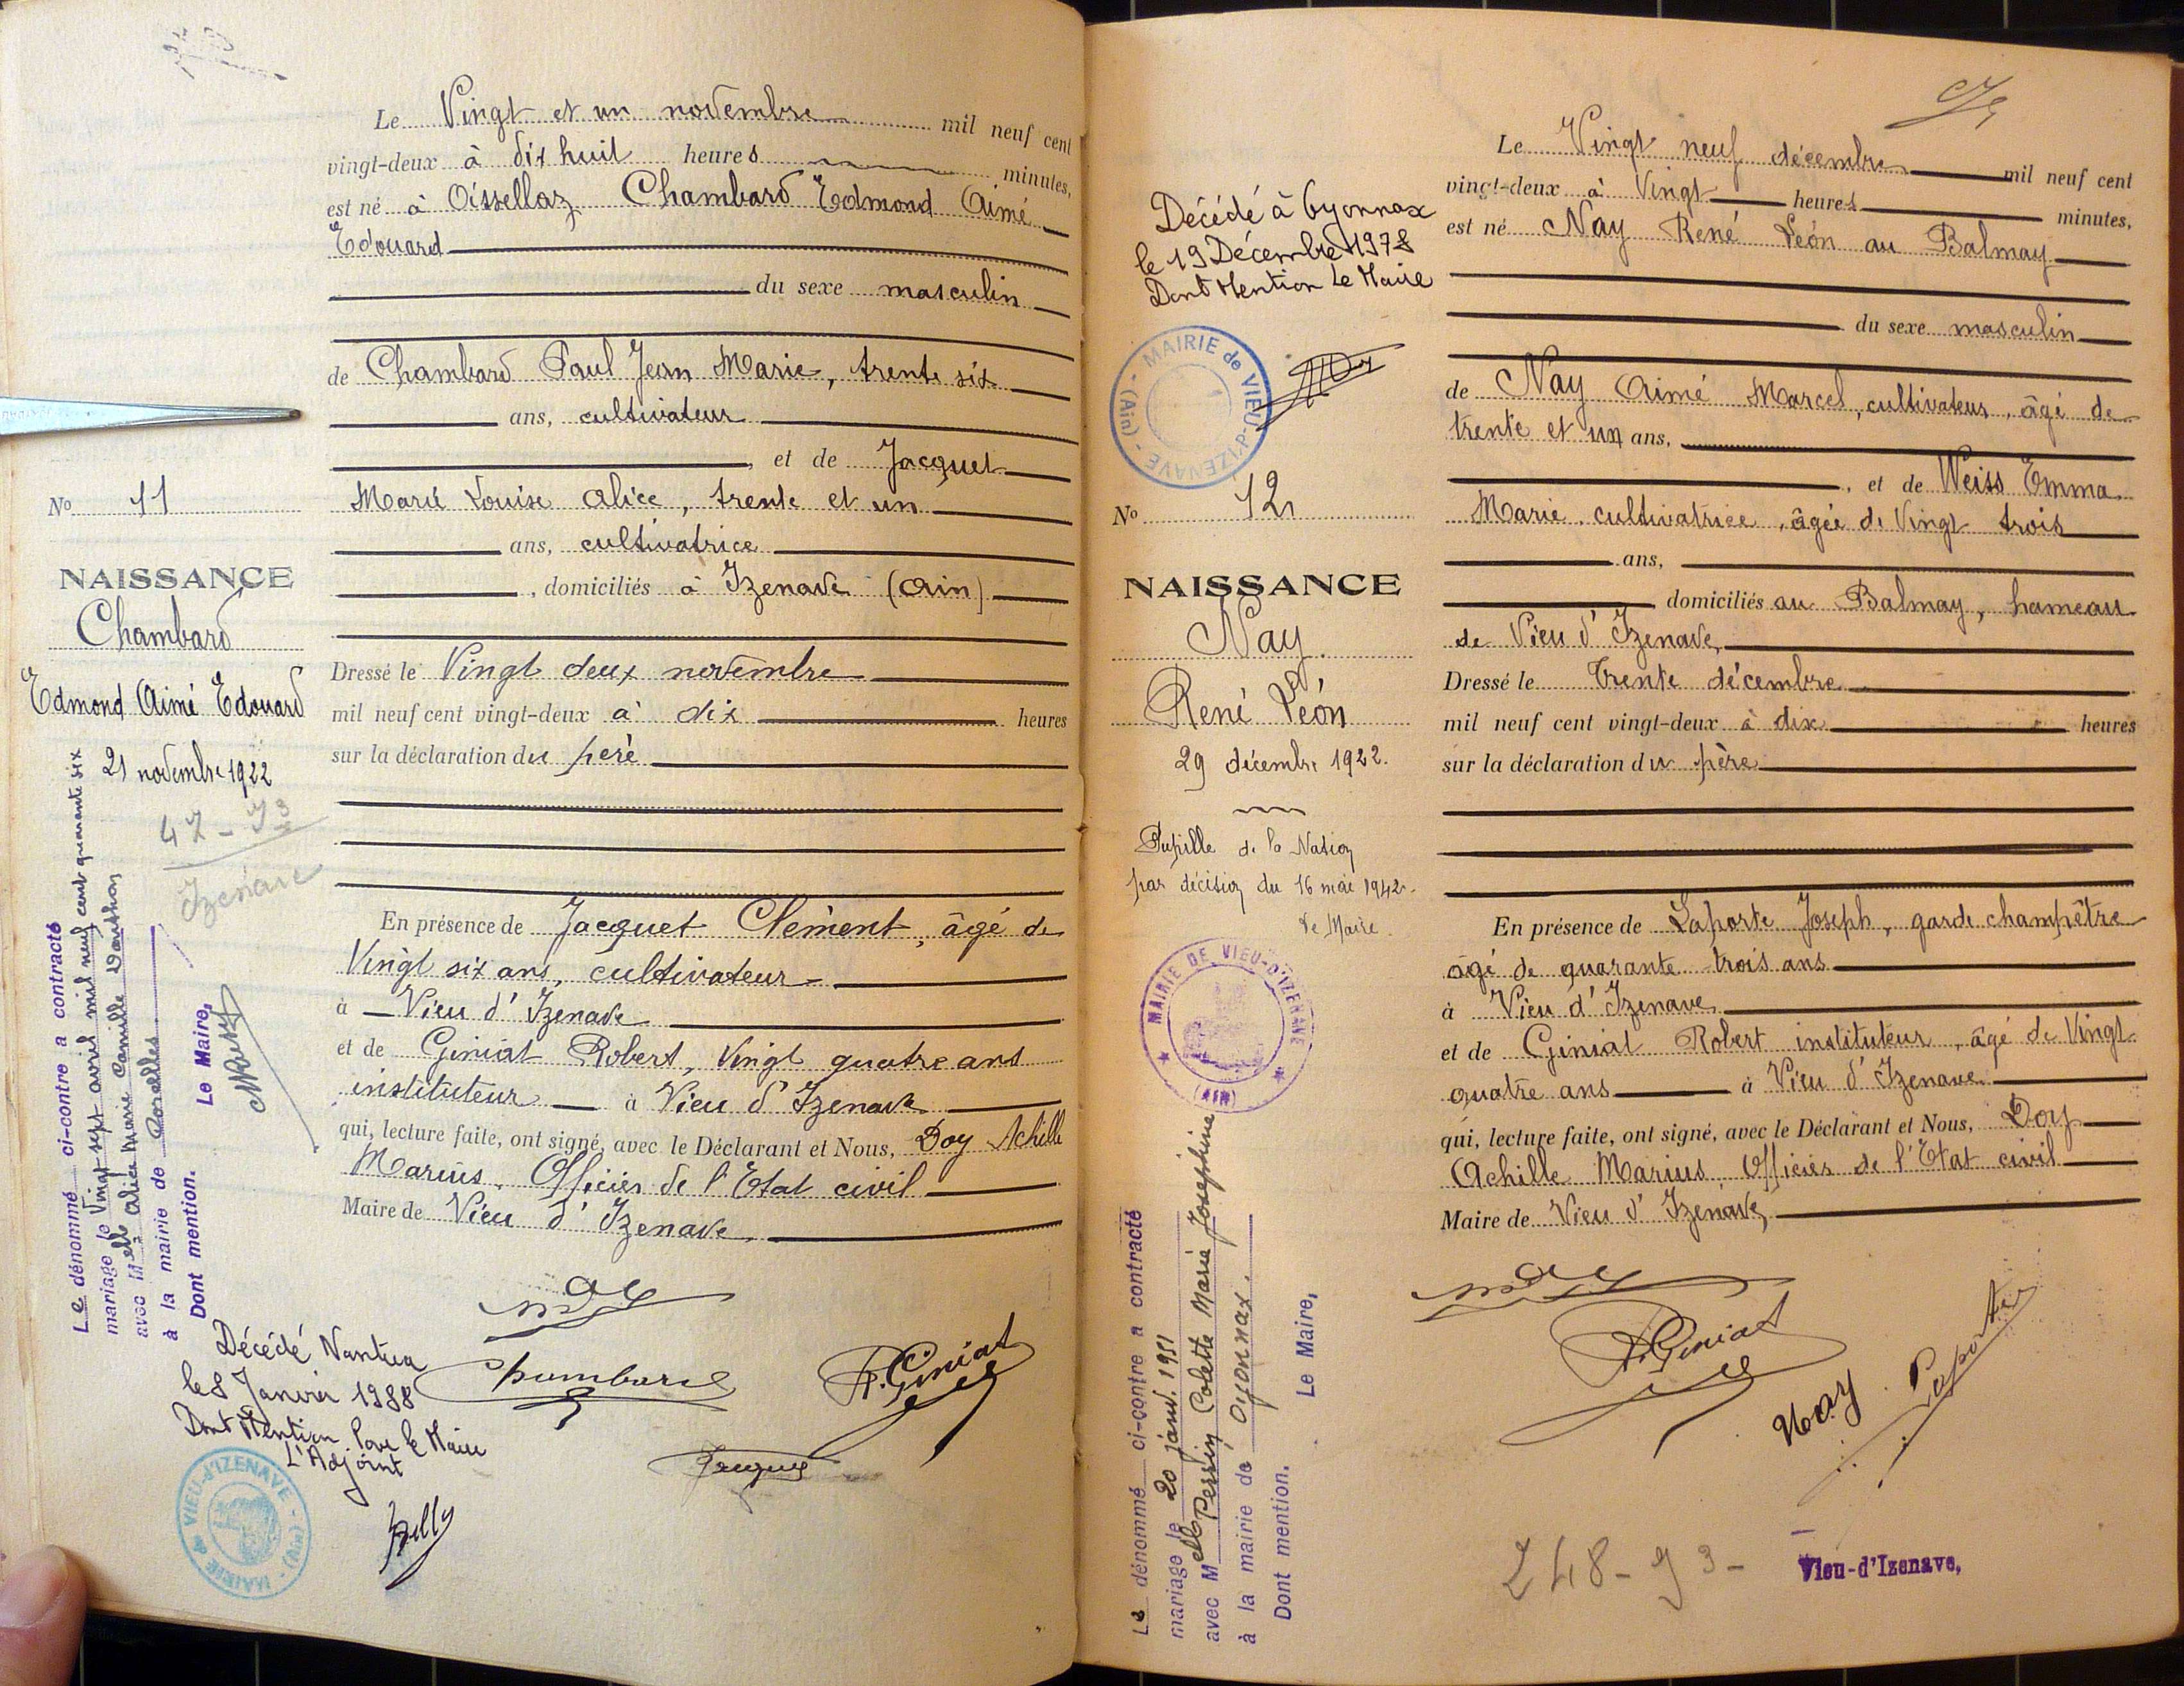 Le Vingt et un novembre mil neuf cent
vingt-deux à dix huit heures minutes,
est né à Oissellaz Chambard Edmond Aimé
Edouard
du sexe masculin
de Chambard Paul Jean Marie, trente six
ans, cultivateur
, et de Jacquet
Marie Louise Alice, trente et un
ans, cultivatrice
, domiciliés à Izenave (Ain)
Dressé le Vingt deux novembre
mil neuf cent vingt-deux à dix heures
sur la déclaration du père
En présence de Jacquet Clément, âgé de
Vingt six ans, cultivateur
à Vieu d'Izenave
et de Giniat Robert, Vingt quatre ans
instituteur à Vieu d'Izenave
qui, lecture faite, ont signé, avec le Déclarant et Nous, Doy Achille
Marius, Officier de l'Etat civil
Maire de Vieu d'Izenave
Chambard
R. Giniat
Jacquet
No 11
NAISSANCE
Chambard
Edmond Aimé Edouard
21 novembre 1922
47 - 73
Izenave
Le dénommé ci-contre a contracté
mariage le Vingt sept avril mil neuf cent quarante six
avec Melle Alice Marie Camille
à la mairie de
Dont mention. Le Maire,
Décédé Nantua
le 8 Janvier 1988
Dont Mention Pour le Maire
L'Adjoint
MAIRIE de VIEU-d'IZENAVE - (Ain) -
Le Vingt neuf décembre mil neuf cent
vingt-deux à Vingt heures minutes,
est né Nay René Léon au Balmay
du sexe masculin
de Nay Aimé Marcel, cultivateur, âgé de
trente et un ans,
, et de Weiss Emma
Marie, cultivatrice, âgée de Vingt trois
ans,
domiciliés au Balmay, hameau
de Vieu d'Izenave
Dressé le Trente décembre
mil neuf cent vingt-deux à dix heures
sur la déclaration du père
En présence de Laporte Joseph, garde champêtre
âgé de quarante trois ans
à Vieu d'Izenave
et de Giniat Robert instituteur, âgé de Vingt
quatre ans à Vieu d'Izenave
qui, lecture faite, ont signé, avec le Déclarant et Nous, Doy
Achille Marius, Officier de l'Etat civil
Maire de Vieu d'Izenave
R. Giniat
Nay
Laporte
248 - 73 -
Vieu-d'Izenave,
Décédé à Oyonnax
le 19 Décembre 1978
Dont Mention Le Maire
MAIRIE de VIEU-d'IZENAVE - (Ain) -
No 12
NAISSANCE
Nay
René Léon
29 décembre 1922.
Pupille de la Nation
par décision du 16 mai 1942.
Le Maire
MAIRIE DE VIEU-D'IZENAVE
(AIN)
Le dénommé ci-contre a contracté
mariage le 20 janv. 1951
avec Melle Perrin Colette Marie Joséphine
à la mairie de Oyonnax.
Dont mention. Le Maire,